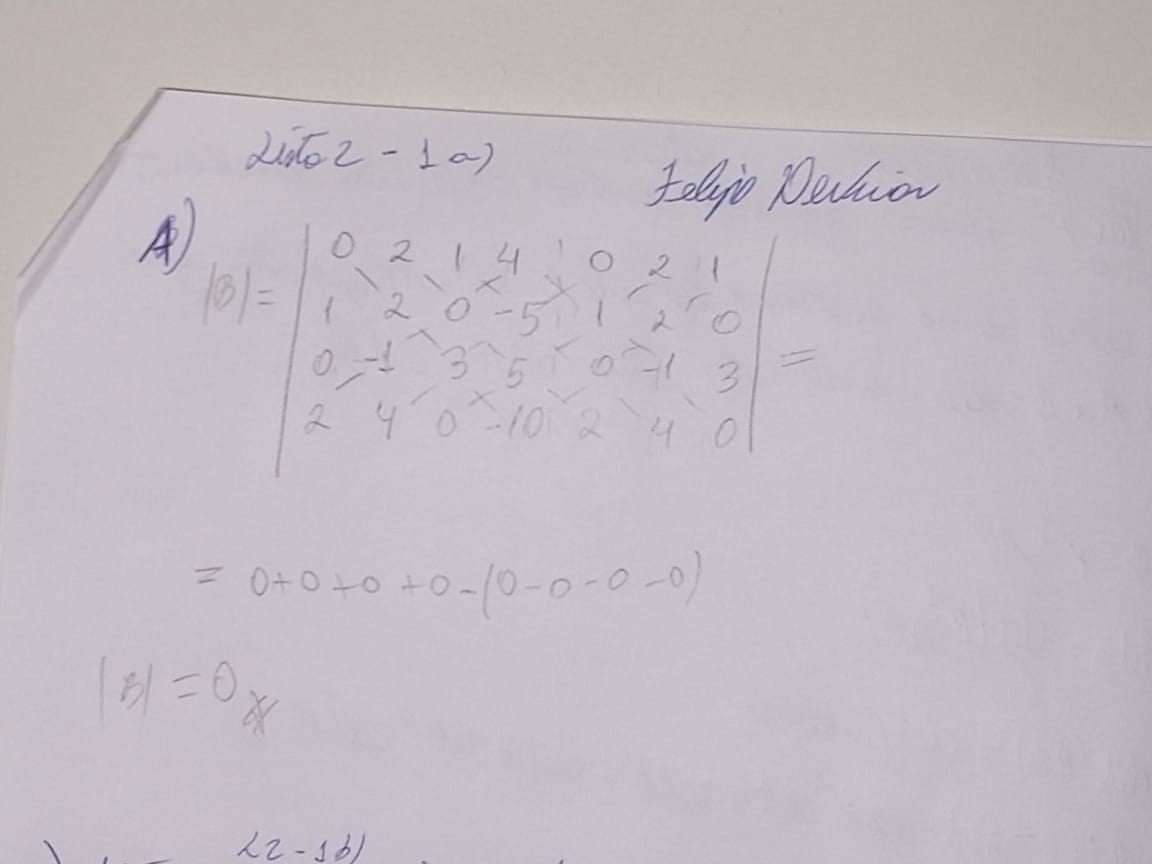 Lista 2 - 1 a)
Felipe
A)
|B| = | 0 2 1 4 0 2 1 |
1 2 0 -5 1 2 0
0 -1 3 5 0 -1 3 =
2 4 0 -10 2 4 0
= 0+0+0+0-(0-0-0-0)
|B| = 0
L2-1b)